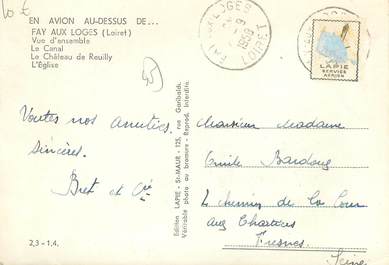 EN AVION AU-DESSUS DE...
FAY AUX LOGES (Loiret)
Vue d'ensemble
Le Canal
Le Château de Reuilly
L'Église
45
FAY AUX LOGES
LOIRET
LAPIE
SERVICE
AERIEN
Toutes nos amitiés
sincères.
Bret et Cie
2,3 - 1,4.
Edition LAPIE - St-MAUR - 125, rue Garibaldi.
Véritable photo au bromure - Reprod. interdite.
Monsieur Madame
Emile
4 chemin de la Cour
aux Chartiers
Fresnes
Seine